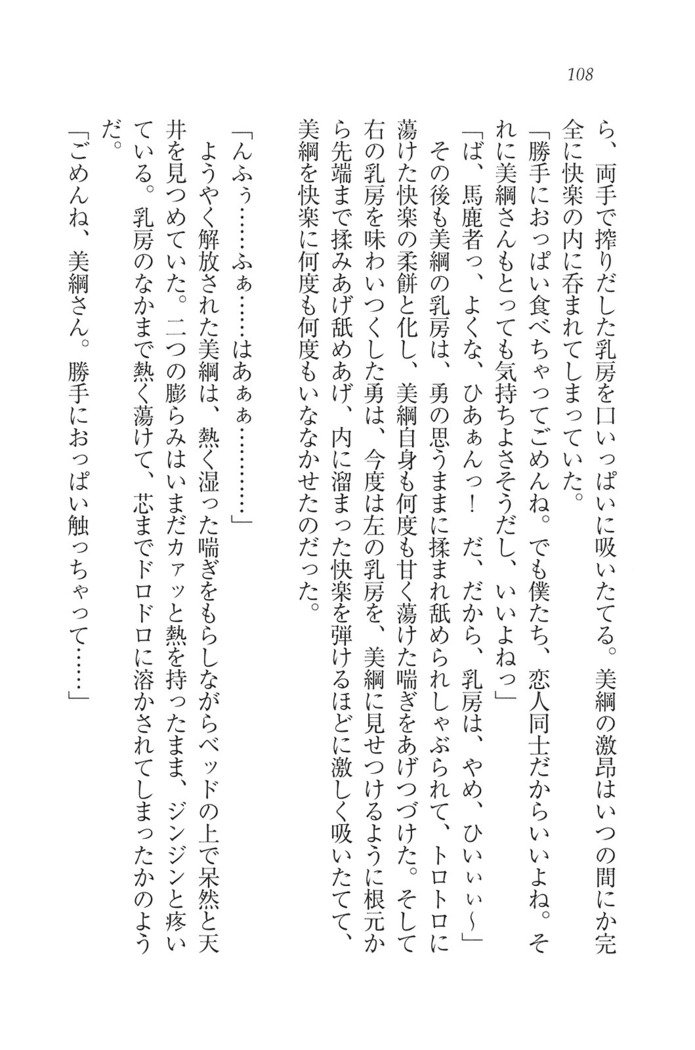 108
ら、両手で搾りだした乳房を口いっぱいに吸いたてる。美綱の激昂はいつの間にか完
全に快楽の内に呑まれてしまっていた。
「勝手におっぱい食べちゃってごめんね。でも僕たち、恋人同士だからいいよね。そ
れに美綱さんもとっても気持ちよさそうだし、いいよねっ」
「ば、馬鹿者っ、よくな、ひあぁんっ！　だ、だから、乳房は、やめ、ひいぃぃ〜」
その後も美綱の乳房は、勇の思うままに揉まれ舐められしゃぶられて、トロトロに
蕩けた快楽の柔餅と化し、美綱自身も何度も甘く蕩けた喘ぎをあげつづけた。そして
右の乳房を味わいつくした勇は、今度は左の乳房を、美綱に見せつけるように根元か
ら先端まで揉みあげ舐めあげ、内に溜まった快楽を弾けるほどに激しく吸いたてて、
美綱を快楽に何度も何度もいななかせたのだった。
「んふぅ……ふぁ……はあぁぁ…………」
ようやく解放された美綱は、熱く湿った喘ぎをもらしながらベッドの上で呆然と天
井を見つめていた。二つの膨らみはいまだカァッと熱を持ったまま、ジンジンと疼い
ている。乳房のなかまで熱く蕩けて、芯までドロドロに溶かされてしまったかのよう
だ。
「ごめんね、美綱さん。勝手におっぱい触っちゃって……」